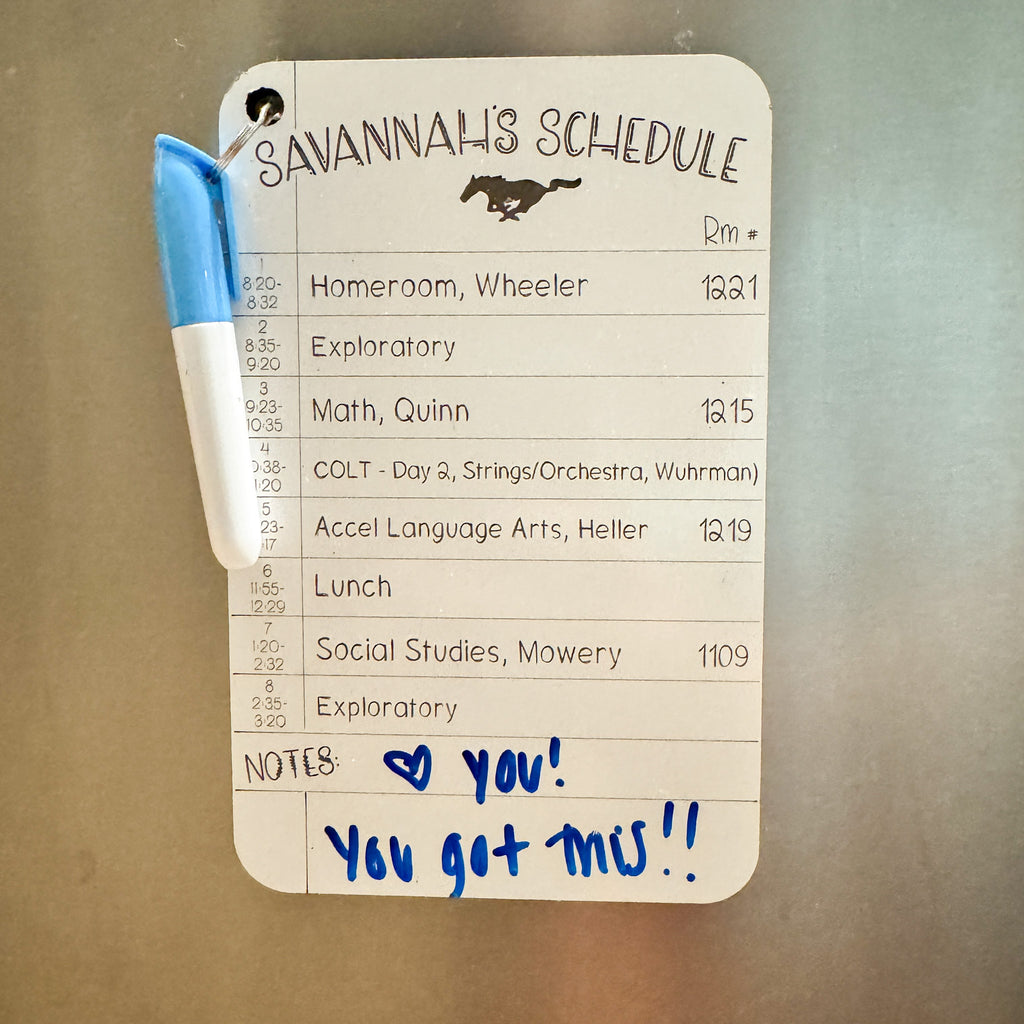 SAVANNAH'S SCHEDULE
Rm #
1
8:20-
8:32
Homeroom, Wheeler 1221
2
8:35-
9:20
Exploratory
3
9:23-
10:35
Math, Quinn 1215
4
COLT - Day 2, Strings/Orchestra, Wuhrman)
5
Accel Language Arts, Heller 1219
6
11:55-
12:29
Lunch
7
1:20-
2:32
Social Studies, Mowery 1109
8
2:35-
3:20
Exploratory
NOTES: ♡ YOU!
You got this!!